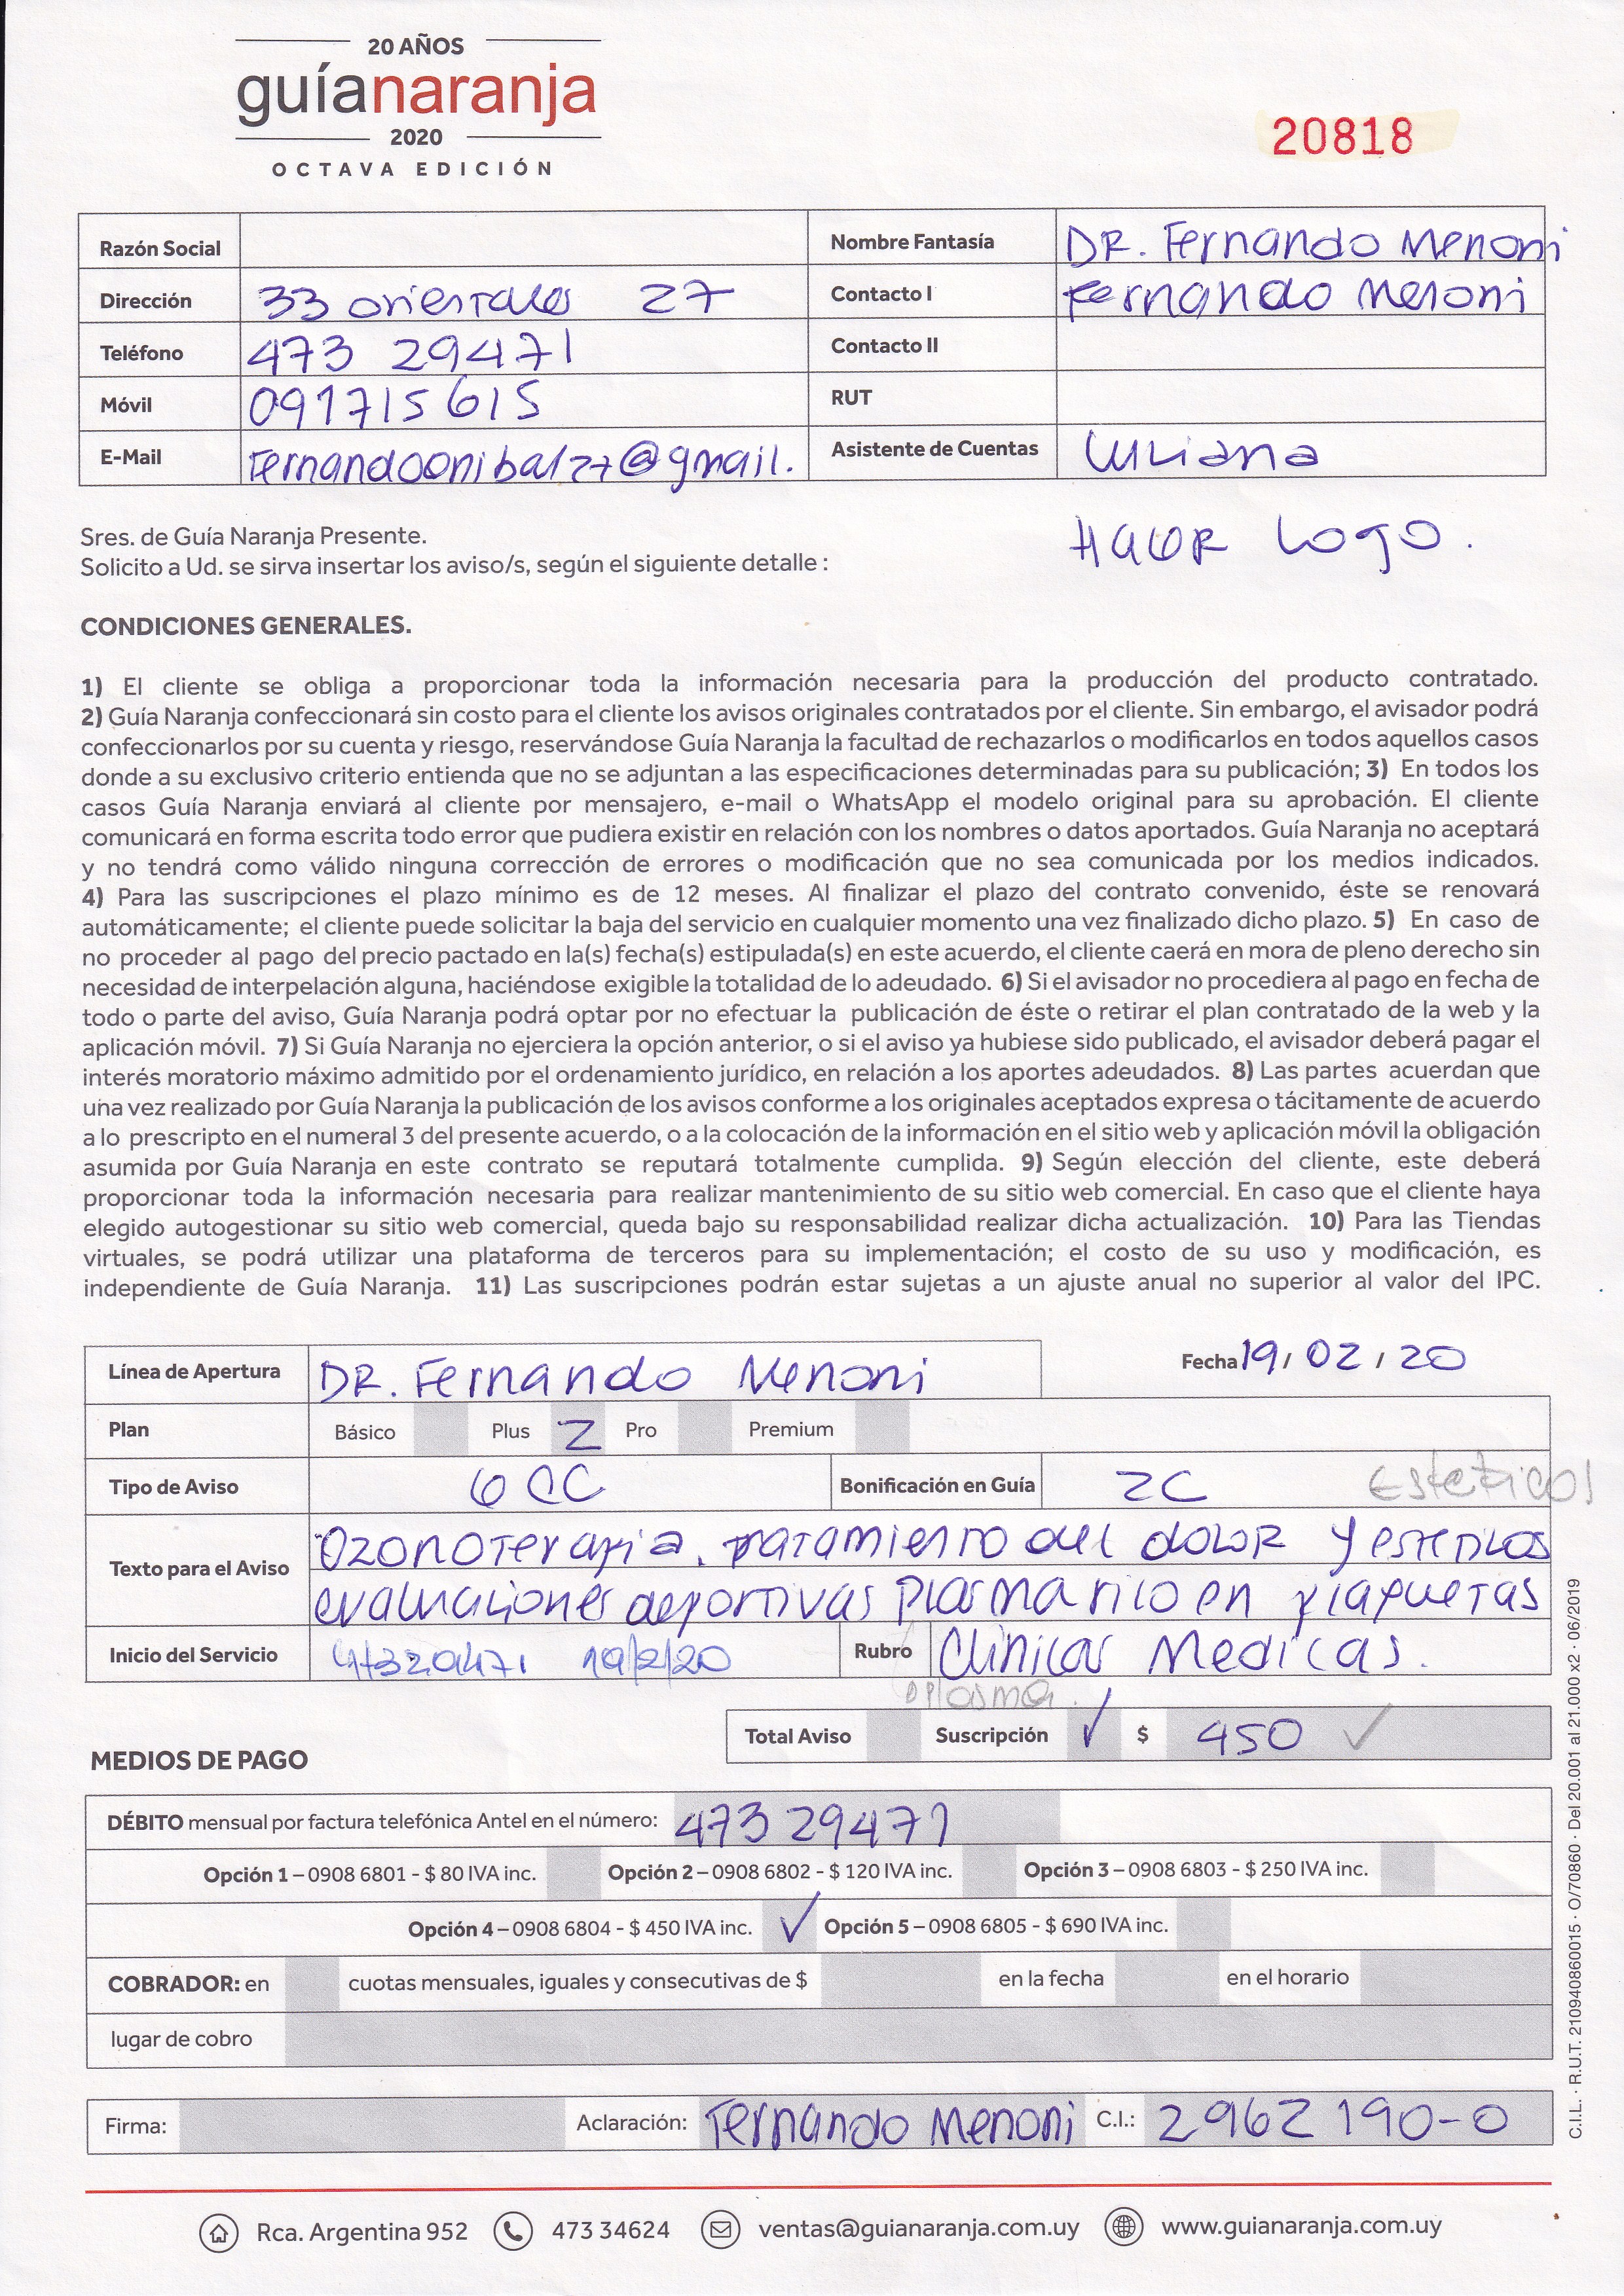 20 AÑOS
guíanaranja
2020
OCTAVA EDICIÓN
20818
Razón Social
Nombre Fantasía DR. Fernando Menoni
Dirección 33 orientales 27
Contacto I Fernando Menoni
Teléfono 473 29471
Contacto II
Móvil 091715615
RUT
E-Mail @gmail.
Asistente de Cuentas
Sres. de Guía Naranja Presente.
Solicito a Ud. se sirva insertar los aviso/s, según el siguiente detalle :
HACER LOGO.
CONDICIONES GENERALES.
1) El cliente se obliga a proporcionar toda la información necesaria para la producción del producto contratado.
2) Guía Naranja confeccionará sin costo para el cliente los avisos originales contratados por el cliente. Sin embargo, el avisador podrá
confeccionarlos por su cuenta y riesgo, reservándose Guía Naranja la facultad de rechazarlos o modificarlos en todos aquellos casos
donde a su exclusivo criterio entienda que no se adjuntan a las especificaciones determinadas para su publicación; 3) En todos los
casos Guía Naranja enviará al cliente por mensajero, e-mail o WhatsApp el modelo original para su aprobación. El cliente
comunicará en forma escrita todo error que pudiera existir en relación con los nombres o datos aportados. Guía Naranja no aceptará
y no tendrá como válido ninguna corrección de errores o modificación que no sea comunicada por los medios indicados.
4) Para las suscripciones el plazo mínimo es de 12 meses. Al finalizar el plazo del contrato convenido, éste se renovará
automáticamente; el cliente puede solicitar la baja del servicio en cualquier momento una vez finalizado dicho plazo. 5) En caso de
no proceder al pago del precio pactado en la(s) fecha(s) estipulada(s) en este acuerdo, el cliente caerá en mora de pleno derecho sin
necesidad de interpelación alguna, haciéndose exigible la totalidad de lo adeudado. 6) Si el avisador no procediera al pago en fecha de
todo o parte del aviso, Guía Naranja podrá optar por no efectuar la publicación de éste o retirar el plan contratado de la web y la
aplicación móvil. 7) Si Guía Naranja no ejerciera la opción anterior, o si el aviso ya hubiese sido publicado, el avisador deberá pagar el
interés moratorio máximo admitido por el ordenamiento jurídico, en relación a los aportes adeudados. 8) Las partes acuerdan que
una vez realizado por Guía Naranja la publicación de los avisos conforme a los originales aceptados expresa o tácitamente de acuerdo
a lo prescripto en el numeral 3 del presente acuerdo, o a la colocación de la información en el sitio web y aplicación móvil la obligación
asumida por Guía Naranja en este contrato se reputará totalmente cumplida. 9) Según elección del cliente, este deberá
proporcionar toda la información necesaria para realizar mantenimiento de su sitio web comercial. En caso que el cliente haya
elegido autogestionar su sitio web comercial, queda bajo su responsabilidad realizar dicha actualización. 10) Para las Tiendas
virtuales, se podrá utilizar una plataforma de terceros para su implementación; el costo de su uso y modificación, es
independiente de Guía Naranja. 11) Las suscripciones podrán estar sujetas a un ajuste anual no superior al valor del IPC.
Línea de Apertura DR. Fernando Menoni
Fecha 19/ 02 / 20
Plan Básico Plus Z Pro Premium
Tipo de Aviso 6 CC
Bonificación en Guía 2C
Esteticos
Texto para el Aviso
Ozonoterapia. tratamiento del dolor y esteticos
evaluaciones deportivas Plasma rico en plaquetas
Inicio del Servicio 47329471 19/2/20
Rubro Clinicas Medicas.
plasma.
Total Aviso Suscripción ✓ $ 450 ✓
MEDIOS DE PAGO
DÉBITO mensual por factura telefónica Antel en el número: 473 29471
Opción 1 – 0908 6801 - $ 80 IVA inc. Opción 2 – 0908 6802 - $ 120 IVA inc. Opción 3 – 0908 6803 - $ 250 IVA inc.
Opción 4 – 0908 6804 - $ 450 IVA inc. ✓ Opción 5 – 0908 6805 - $ 690 IVA inc.
COBRADOR: en cuotas mensuales, iguales y consecutivas de $ en la fecha en el horario
lugar de cobro
Firma: Aclaración: Fernando Menoni C.I.: 2962 190-0
C.I.L. · R.U.T. 210940860015 · O/70860 · Del 20.001 al 21.000 x2 · 06/2019
Rca. Argentina 952 473 34624 ventas@guianaranja.com.uy www.guianaranja.com.uy